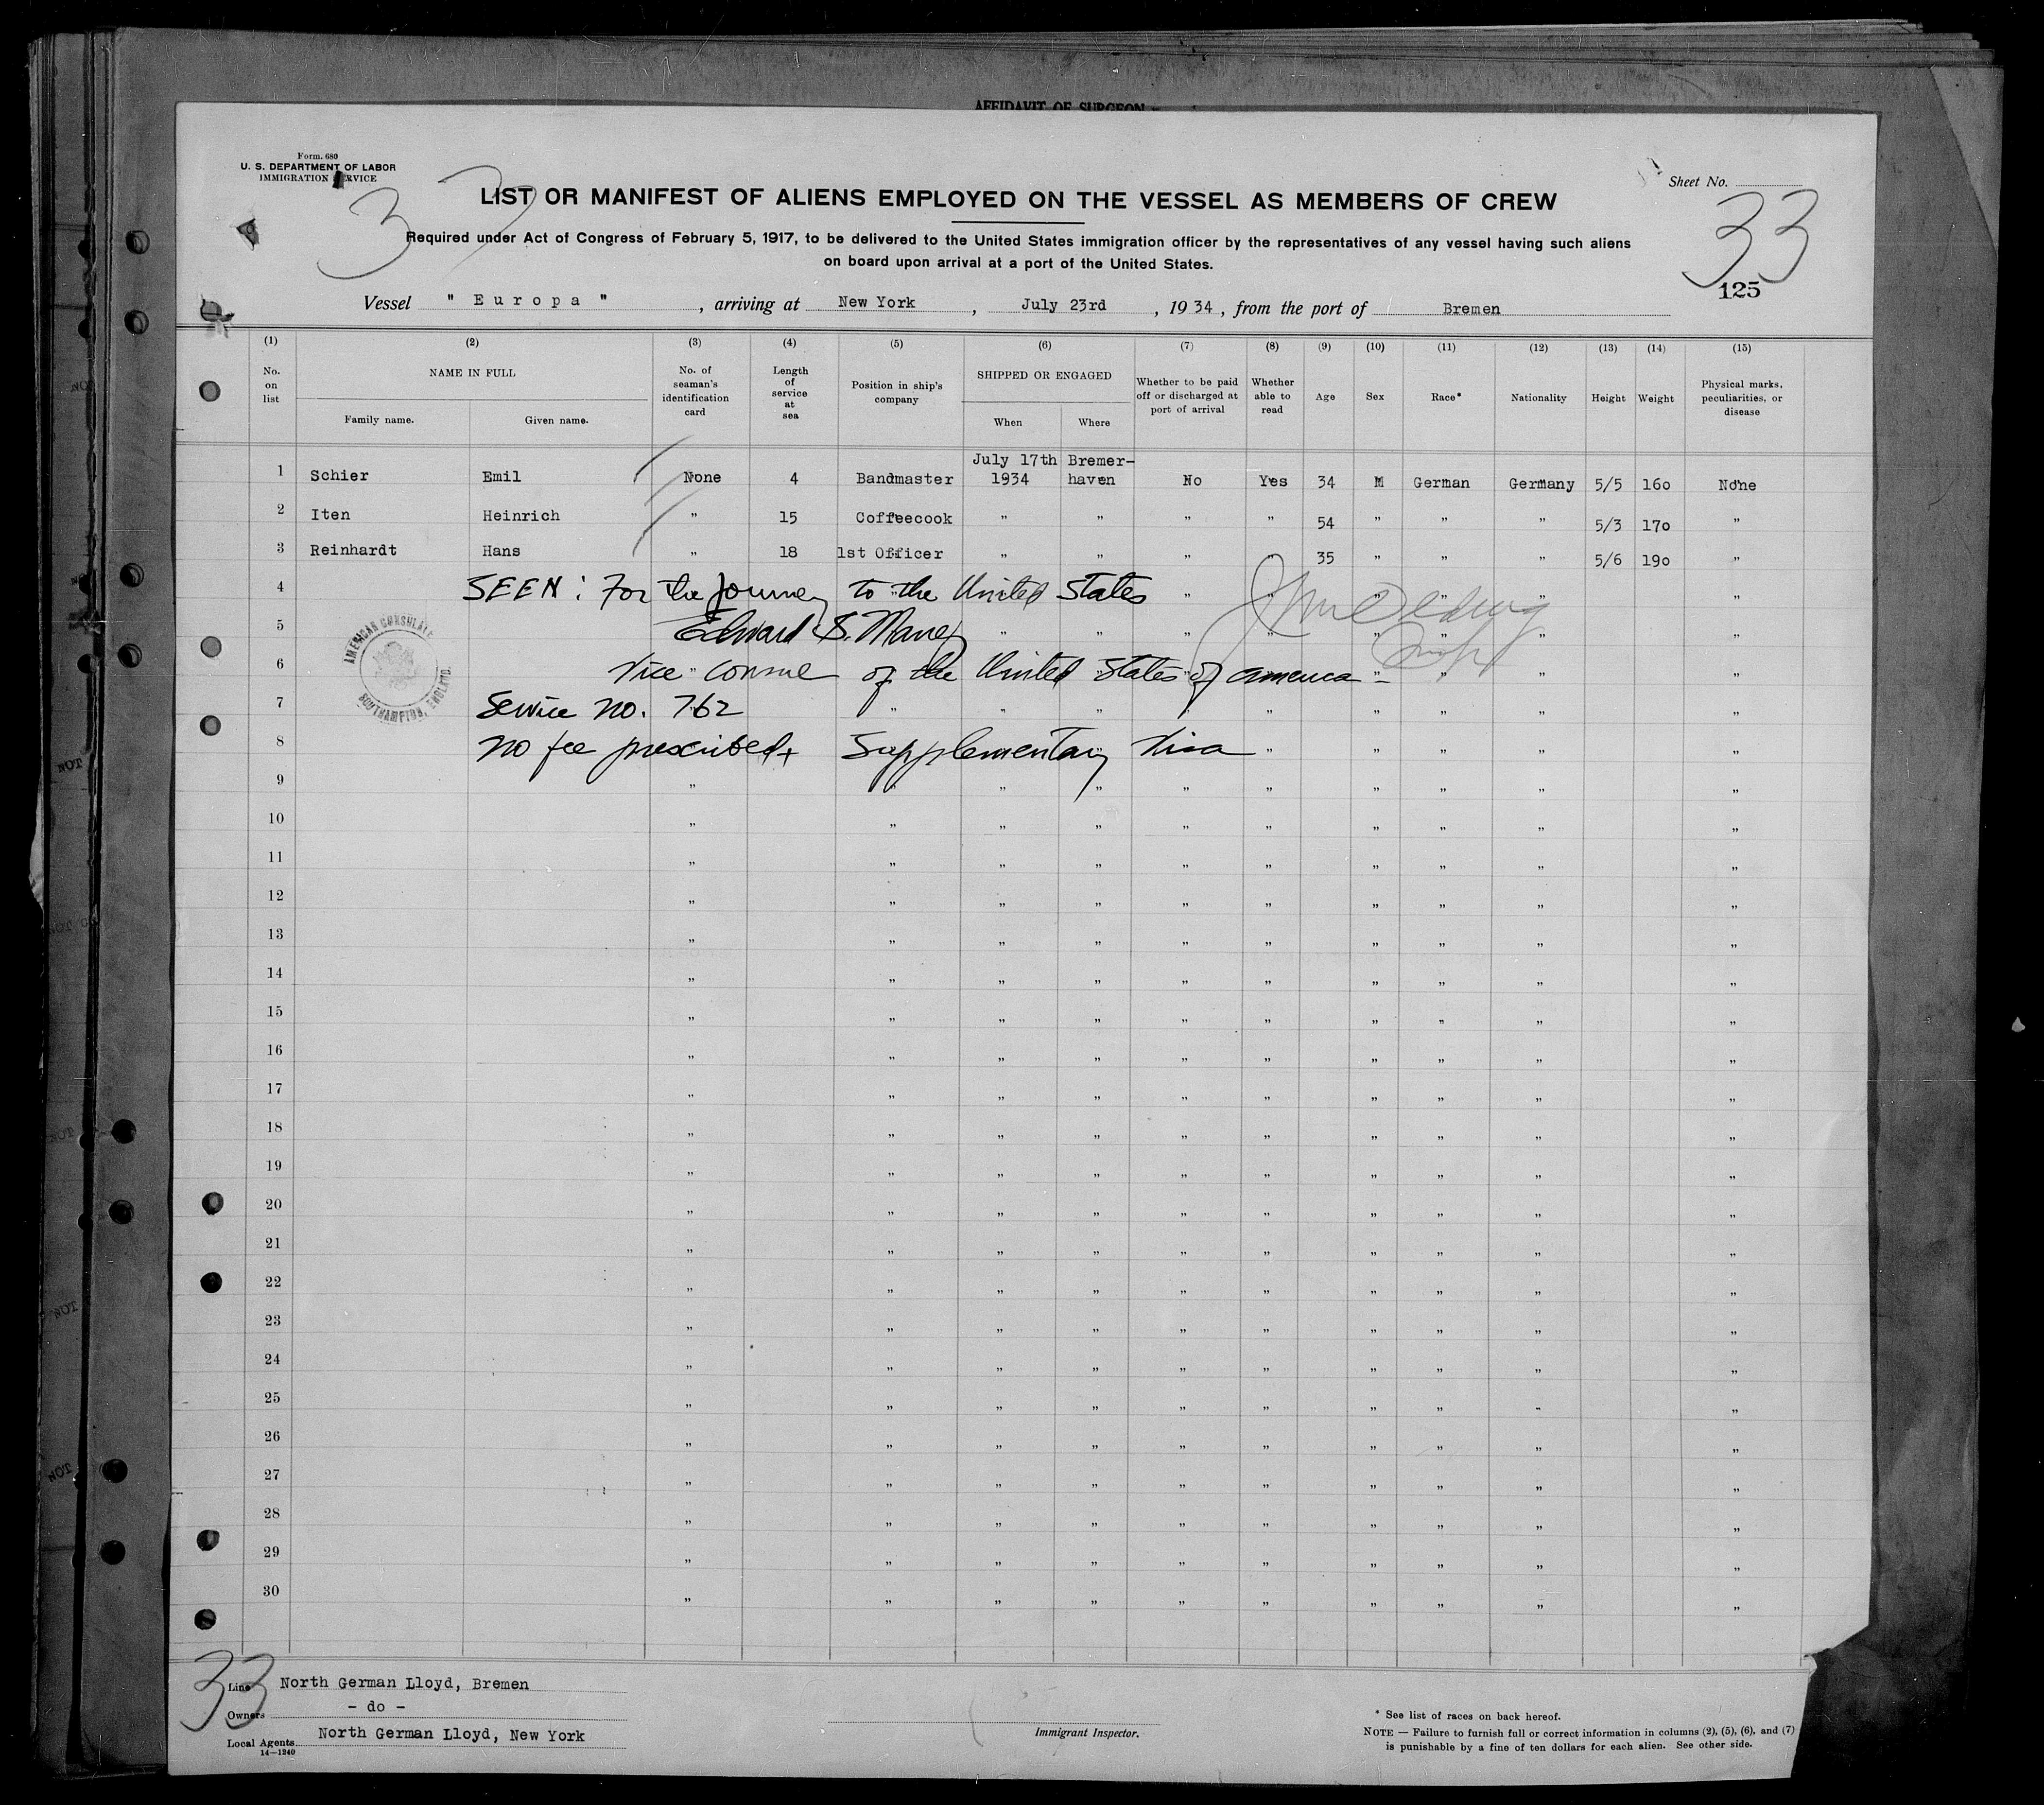 AFFIDAVIT OF SURGEON
Form. 680
U. S. DEPARTMENT OF LABOR
IMMIGRATION SERVICE
Sheet No.
3
33
125
LIST OR MANIFEST OF ALIENS EMPLOYED ON THE VESSEL AS MEMBERS OF CREW
Required under Act of Congress of February 5, 1917, to be delivered to the United States immigration officer by the representatives of any vessel having such aliens
on board upon arrival at a port of the United States.
Vessel " Europa " , arriving at New York , July 23rd , 1934 , from the port of Bremen
(1) (2) (3) (4) (5) (6) (7) (8) (9) (10) (11) (12) (13) (14) (15)
No. on list NAME IN FULL Family name. Given name. No. of seaman's identification card Length of service at sea Position in ship's company SHIPPED OR ENGAGED When Where Whether to be paid off or discharged at port of arrival Whether able to read Age Sex Race* Nationality Height Weight Physical marks, peculiarities, or disease
1 Schier Emil None 4 Bandmaster July 17th 1934 Bremer-haven No Yes 34 M German Germany 5/5 160 None
2 Iten Heinrich " 15 Coffeecook " " " " 54 " " " 5/3 170 "
3 Reinhardt Hans " 18 1st Officer " " " " 35 " " " 5/6 190 "
4 SEEN: For the Journey to the United States " " " " " "
5 Edward S. Maney " " " " " " " "
6 Vice Consul of the United States of America " " " "
7 Service No. 762 " " " " " " " " "
8 No fee prescribed + Supplementary Visa " " " " "
AMERICAN CONSULATE
SOUTHAMPTON, ENGLAND.
9 " " " " " " " " " "
10 " " " " " " " " " "
11 " " " " " " " " " "
12 " " " " " " " " " "
13 " " " " " " " " " "
14 " " " " " " " " " "
15 " " " " " " " " " "
16 " " " " " " " " " "
17 " " " " " " " " " "
18 " " " " " " " " " "
19 " " " " " " " " " "
20 " " " " " " " " " "
21 " " " " " " " " " "
22 " " " " " " " " " "
23 " " " " " " " " " "
24 " " " " " " " " " "
25 " " " " " " " " " "
26 " " " " " " " " " "
27 " " " " " " " " " "
28 " " " " " " " " " "
29 " " " " " " " " " "
30 " " " " " " " " " "
33
Line North German Lloyd, Bremen
Owners - do -
Local Agents North German Lloyd, New York
14—1240
Immigrant Inspector.
* See list of races on back hereof.
NOTE — Failure to furnish full or correct information in columns (2), (5), (6), and (7)
is punishable by a fine of ten dollars for each alien. See other side.